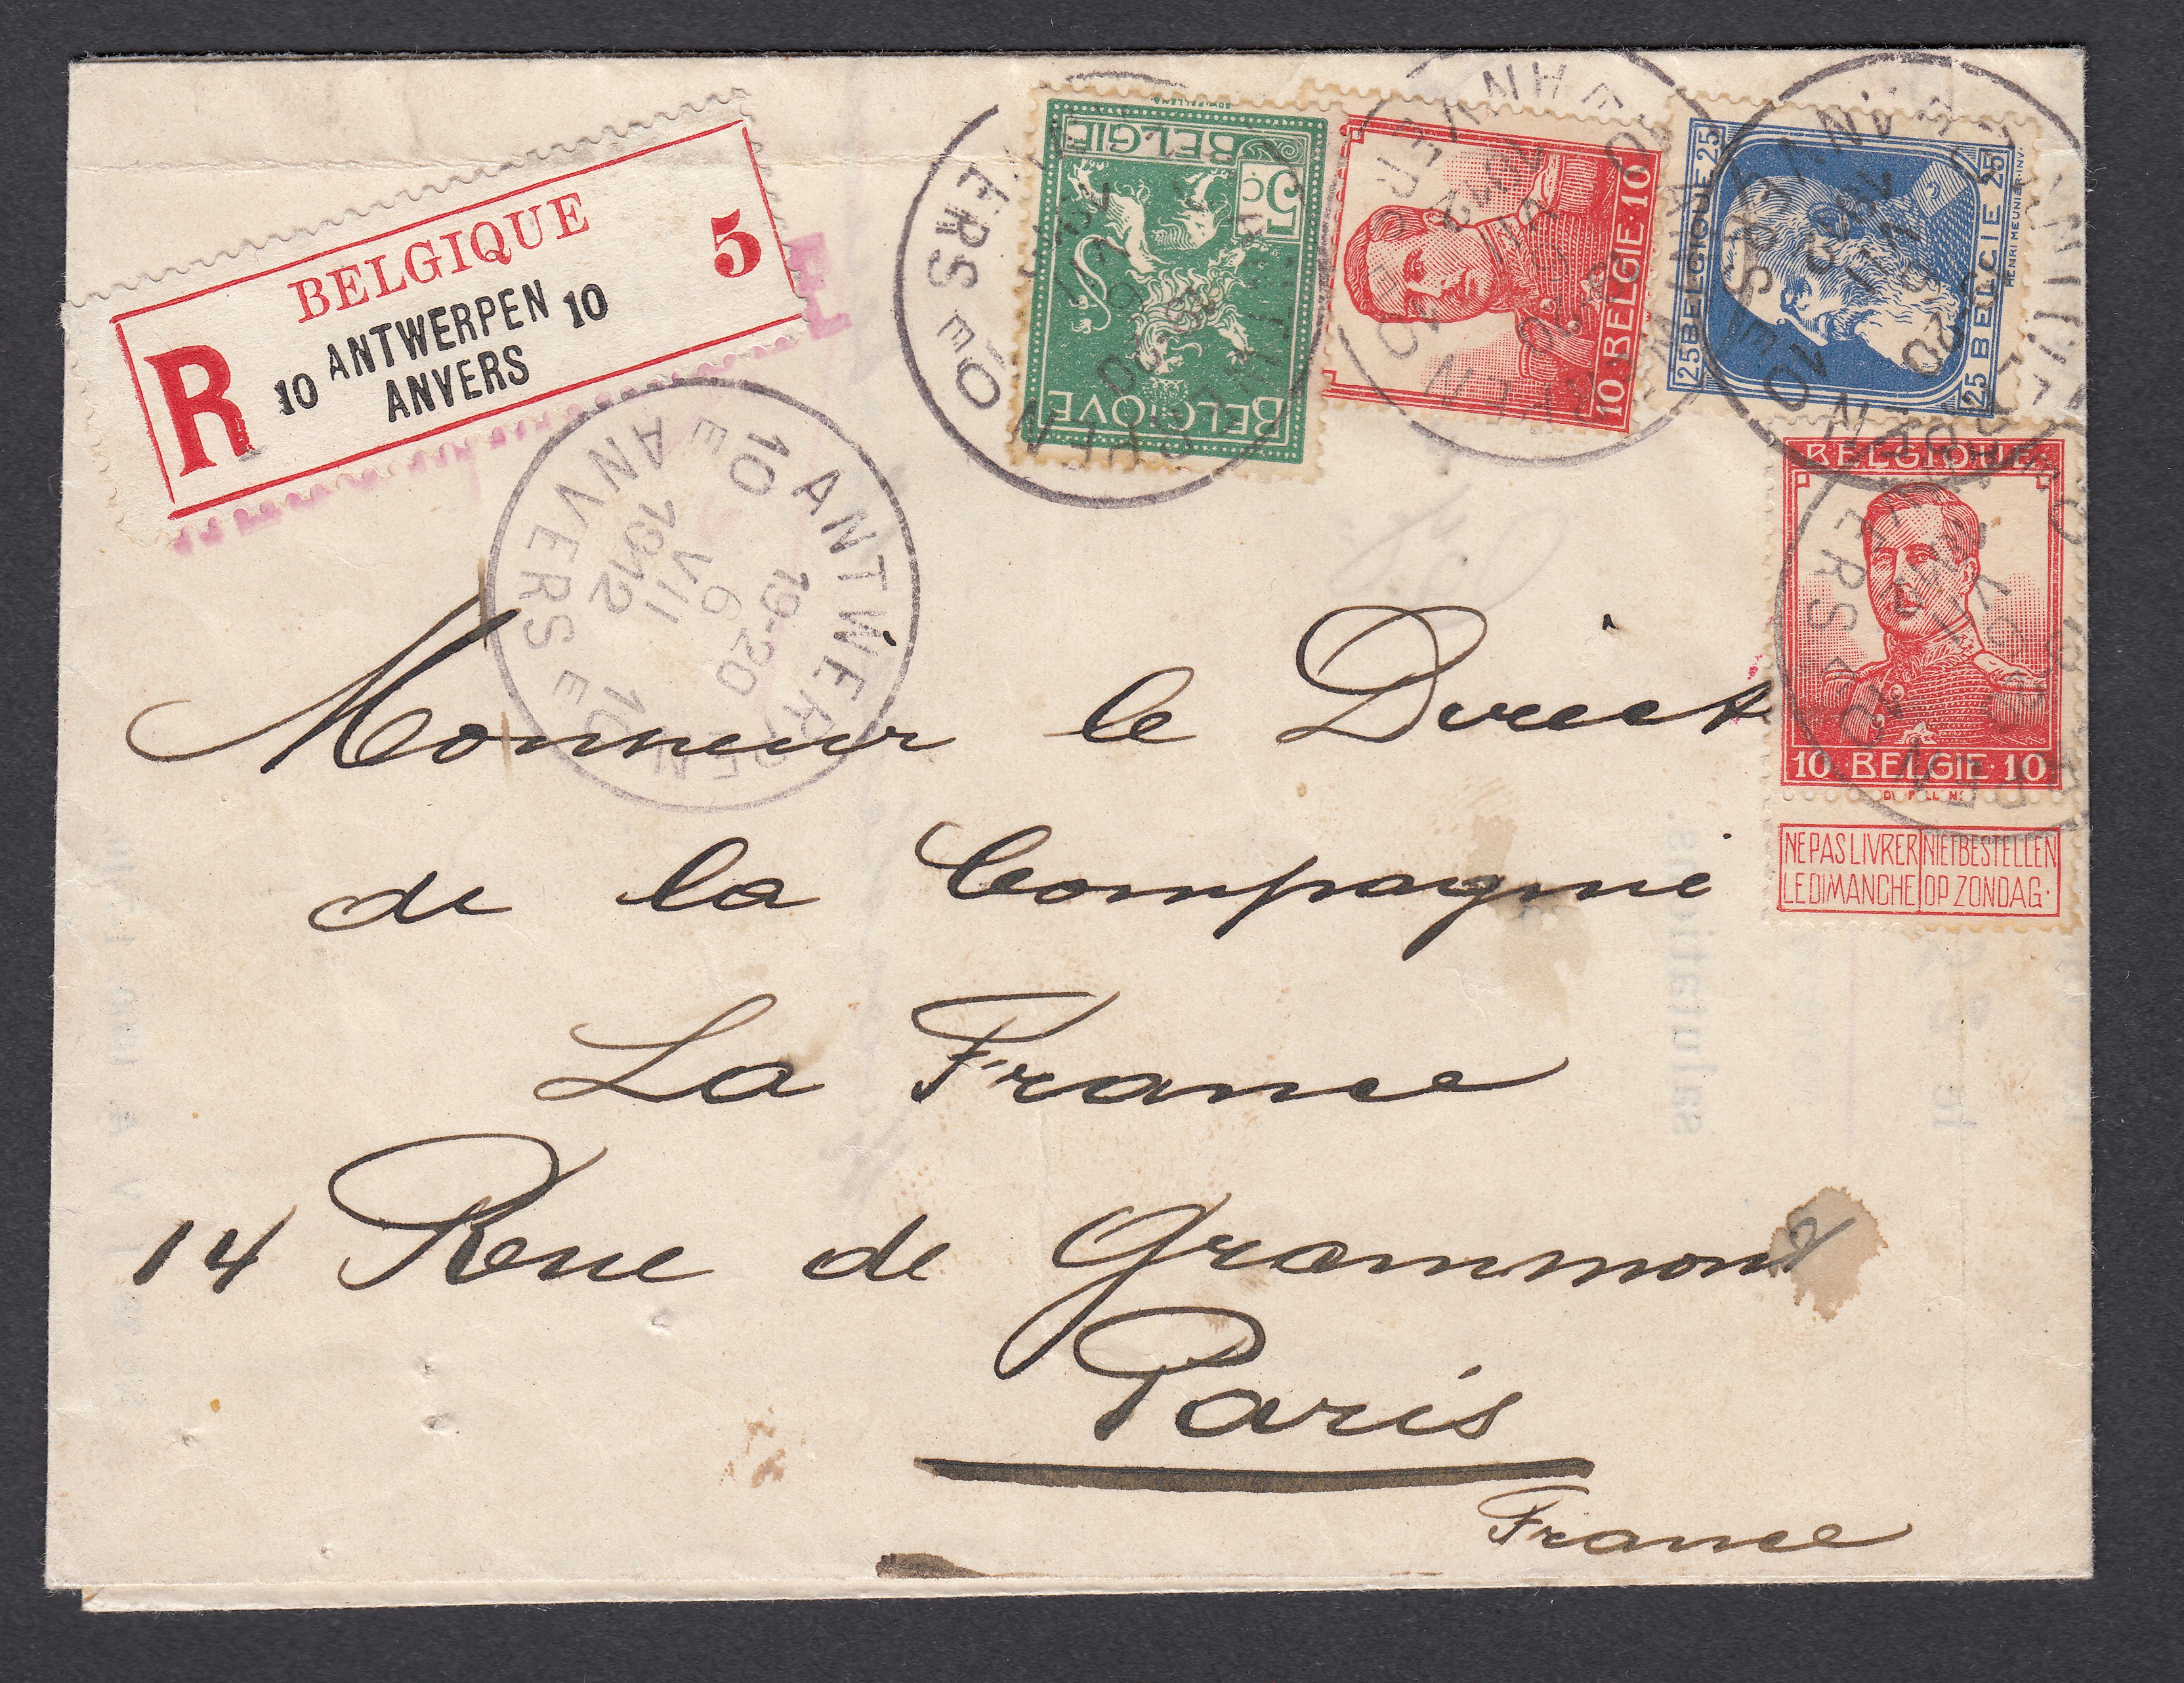 BELGIQUE
R 10 ANTWERPEN 10 5
ANVERS
ANTWERPEN 10
10E ANVERS E
19-20
6
VII
1912
BELGIE
5c
BELGIQUE
10·BELGIE·10
25 BELGIQUE 25
25 BELGIE 25
HENRI MEUNIER·INV.
·BELGIQUE·
10 BELGIE·10
NE PAS LIVRER NIET BESTELLEN
LE DIMANCHE OP ZONDAG·
Monsieur le Direct
de la Compagnie
La France
14 Rue de Grammont
Paris
France
salutations.